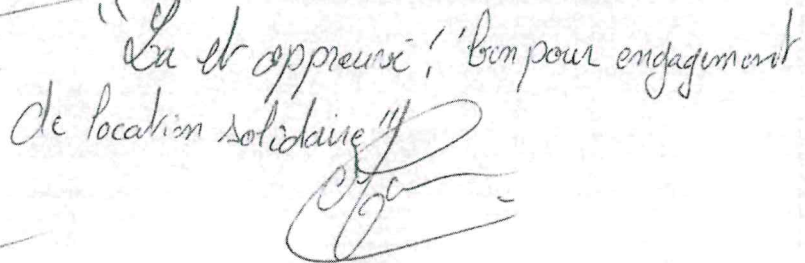 "Lu et approuvé", "bon pour engagement
de location solidaire"